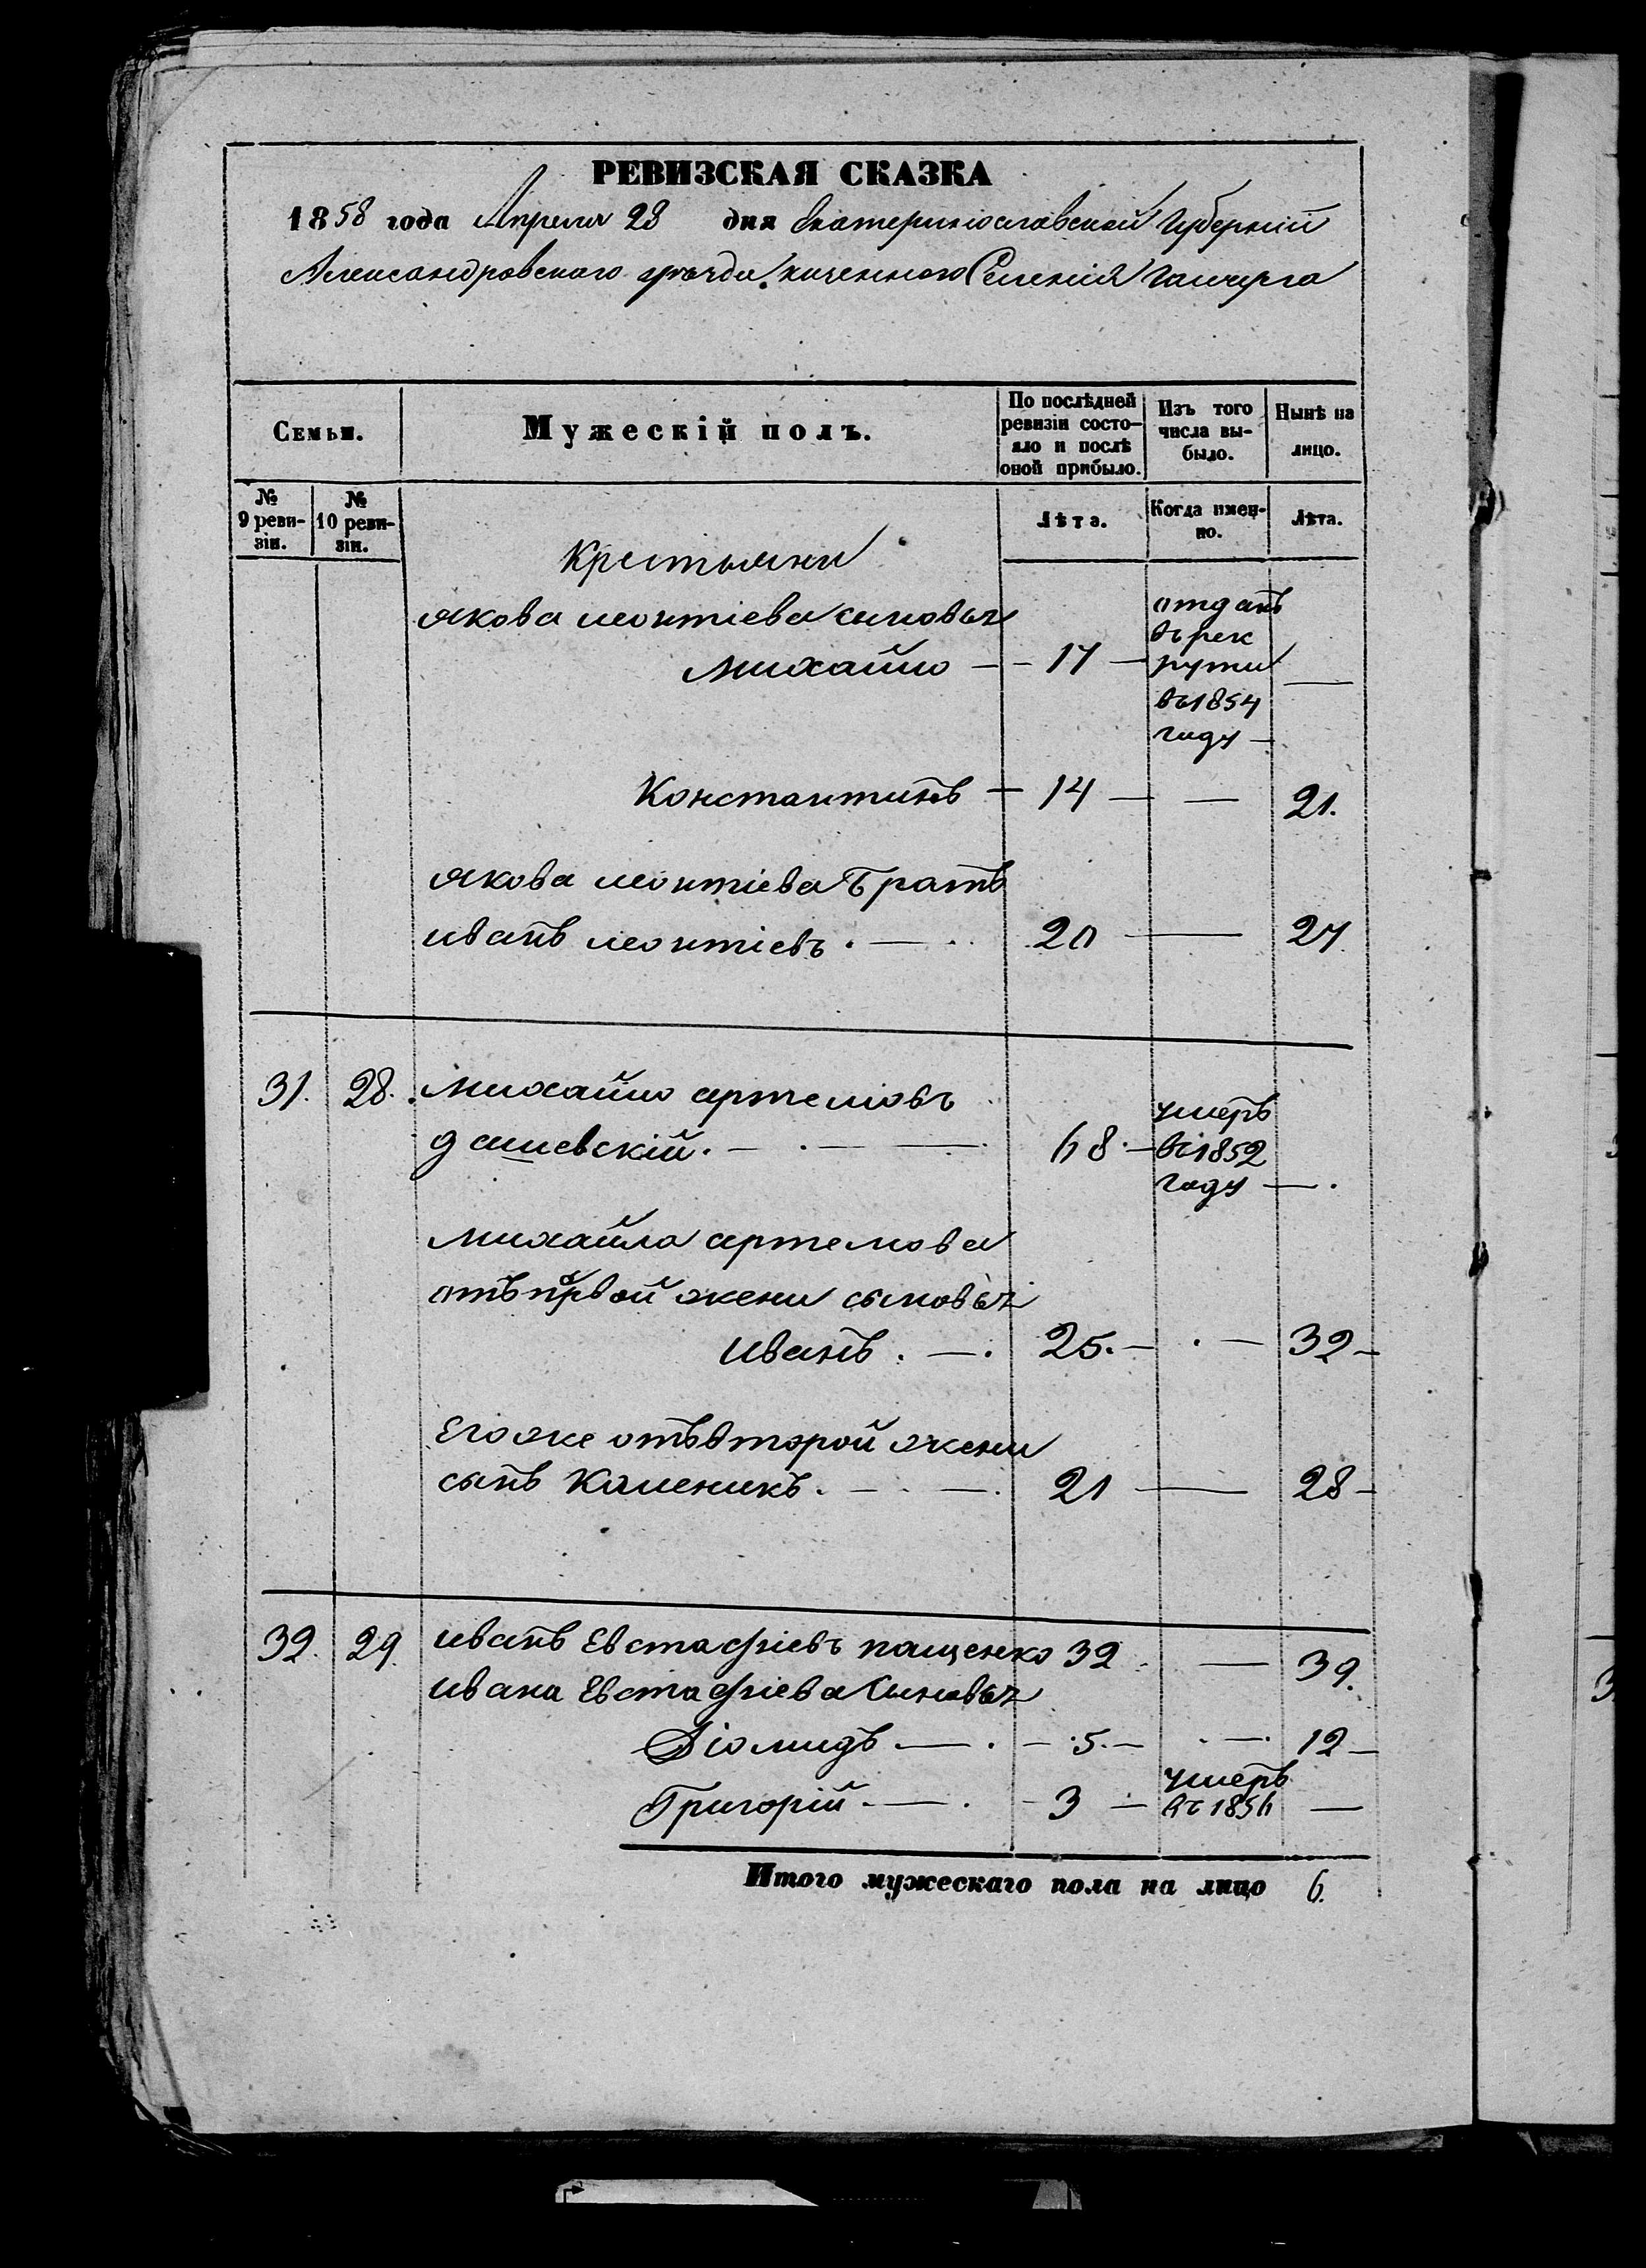 РЕВИЗСКАЯ СКАЗКА
1858 года Апреля 28 дня Екатеринославской Губерніи
Александровского уѣзда казенного Селенія Гайчура
Семьи.
Мужескій полъ.
По послѣдней ревизіи состо-
яло и послѣ
оной прибыло.
Изъ того
числа вы-
было.
Нынѣ на
лицо.
№
9 реви-
зіи.
№
10 реви-
зіи.
Лѣта.
Когда имен-
но.
Лѣта.
Крестьяни
якова леонтіева сыновья
Михайло — 17 — отданъ
въ рек
руты
въ 1854
году —
Константинъ — 14 — — 21.
якова леонтіева Братъ
иванъ леонтіевъ. — 20 — 27
31. 28. Михайло артемовъ
дашевскій. — 68. — умеръ
въ 1852
году —.
Михайла артемова
отъ первой жени сыновья
иванъ. —. 25. — . — 32 —
Его же отъ второй жени
сынъ Каленикъ. — 21 — 28 —
32. 29. иванъ Евстафіевъ пащенко 32 — 39.
ивана Евстафіева Сыновья
Діомидъ — . — 5. — . — 12 —
Григорій. — . — 3 — умеръ
въ 1856 —
Итого мужескаго пола на лицо 6.